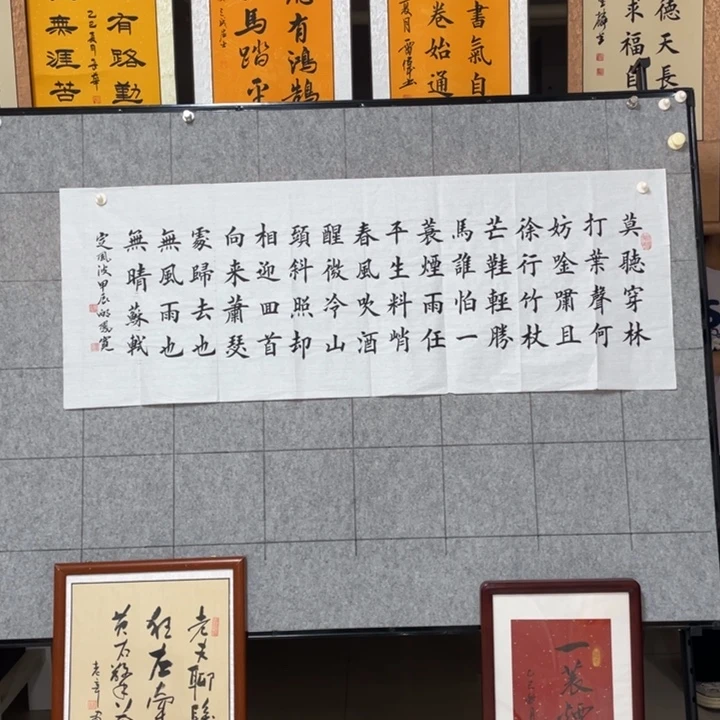 德天長
求福自
書氣自
卷始通
有鴻鵠
馬踏平
有路勤
無涯苦
莫聽穿林
打葉聲何
妨唫嘯且
徐行竹杖
芒鞋輕勝
馬誰怕一
蓑煙雨任
平生料峭
春風吹酒
醒微冷山
頭斜照却
相迎囬首
向来蕭瑟
處歸去也
無風雨也
無晴蘇軾
定風波甲辰
一蓑煙
老夫聊發
狂左牽
黄右擎蒼